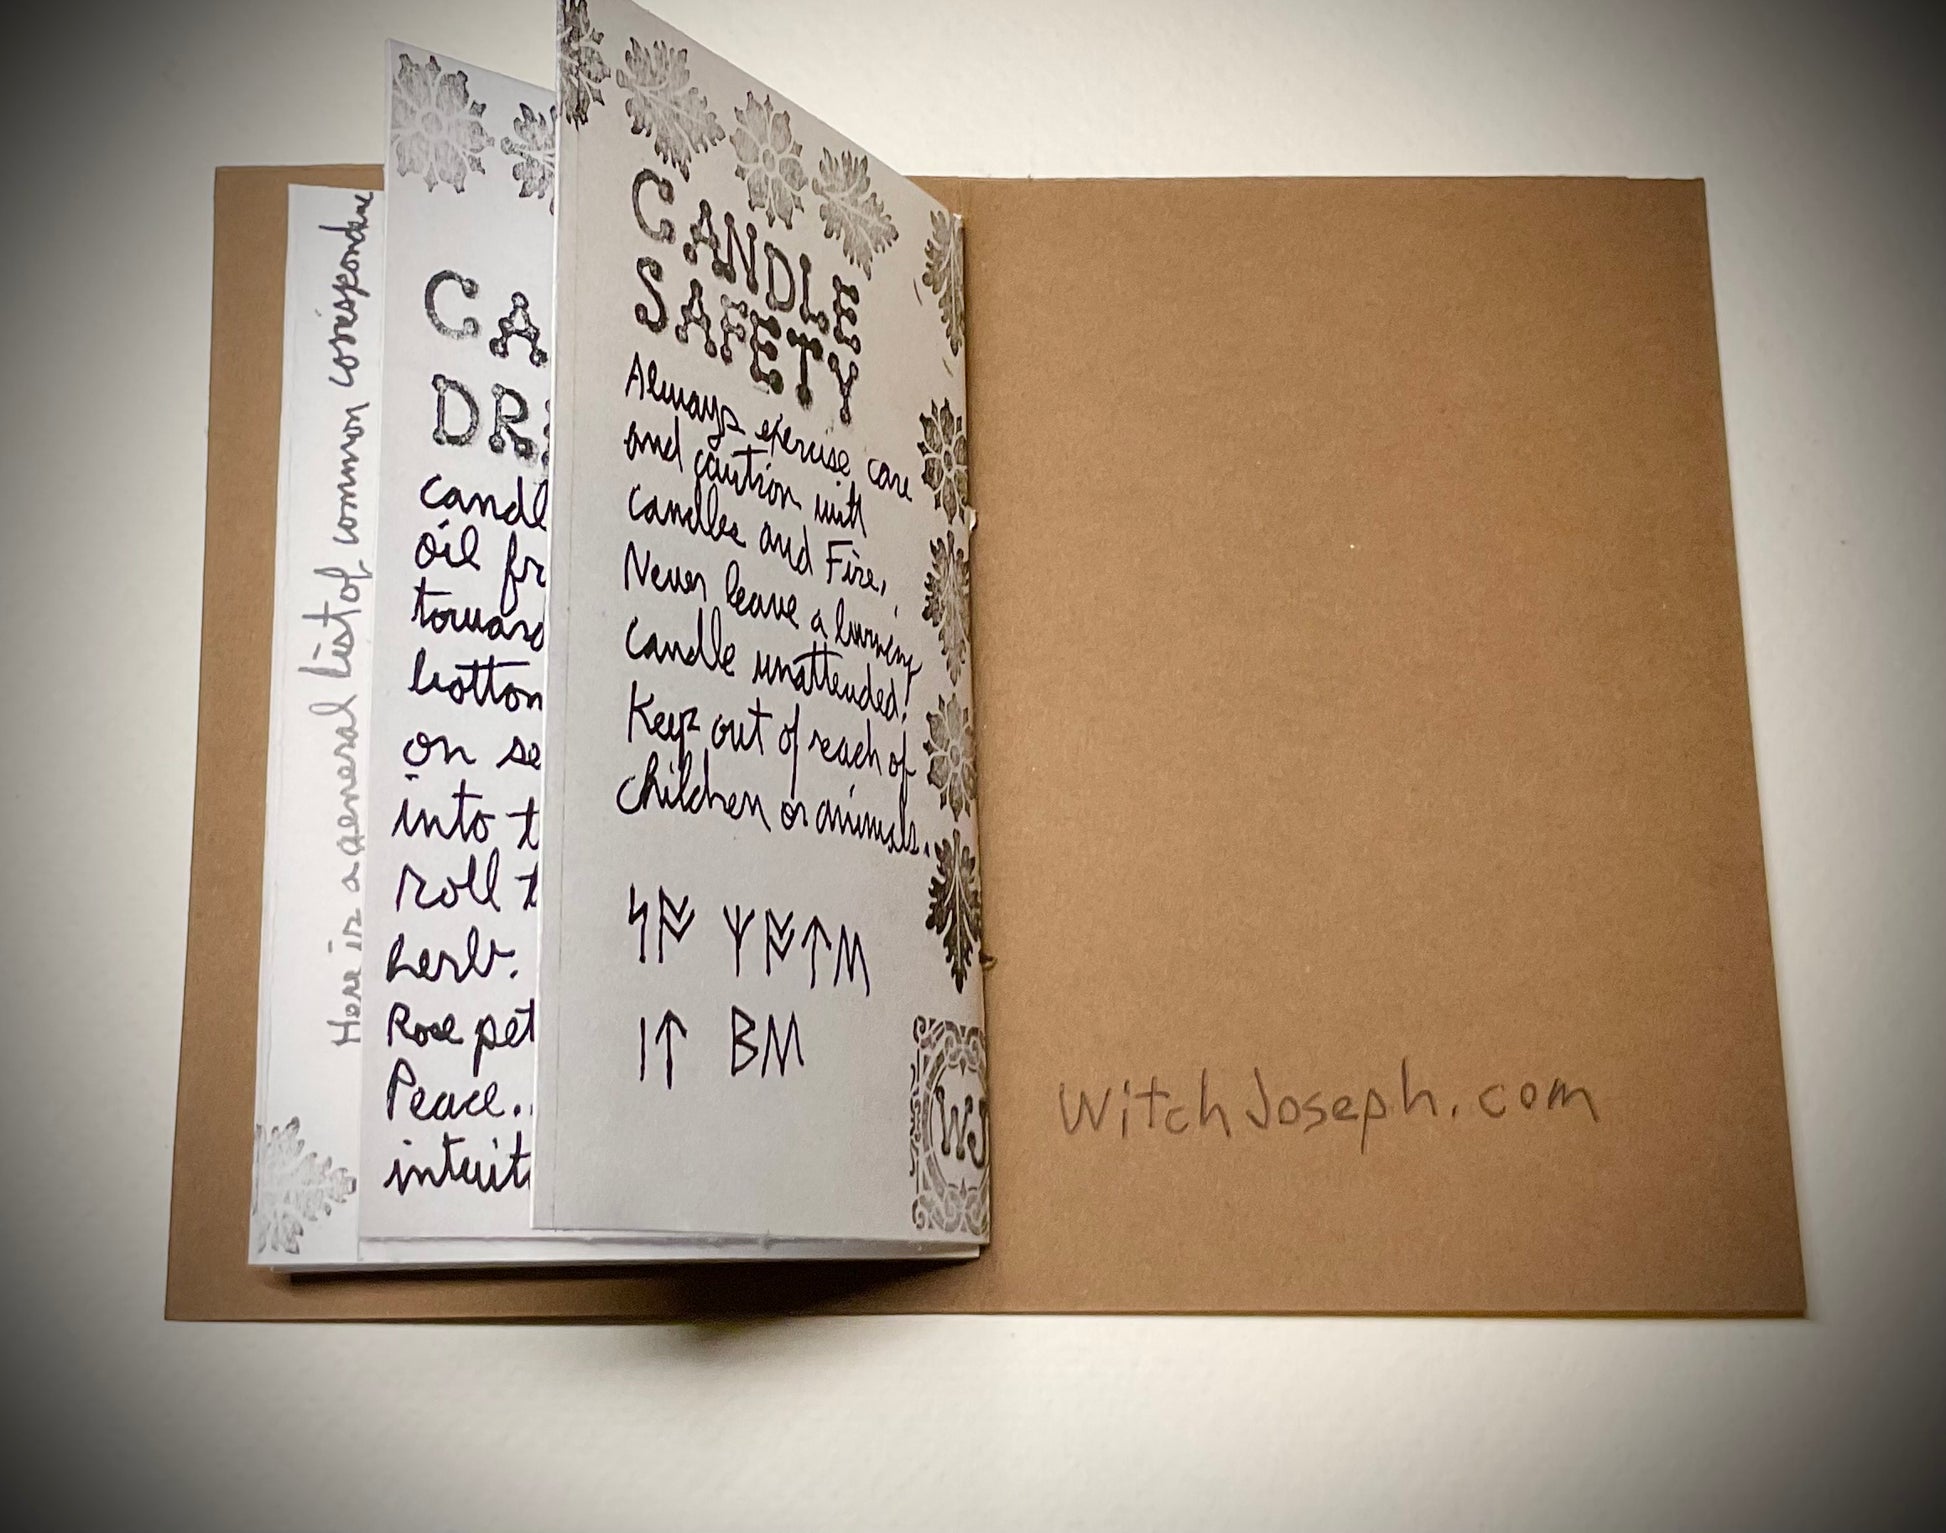 Here is a general List of common
CA
DR
candl
oil fr
toward
bottom
on se
into t
roll t
herb.
Rose pet
Peace..
intuit
CANDLE
SAFETY
Always exercise care
and caution with
candles and Fire,
Never leave a burning
candle unattended!
Keep out of reach of
children or animals.
ᛋᚩ ᛘᚩᛏᛖ
ᛁᛏ ᛒᛖ
WJ
WitchJoseph.com